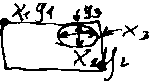 x₁ y₁ y₃ x₃
x₂ y₂